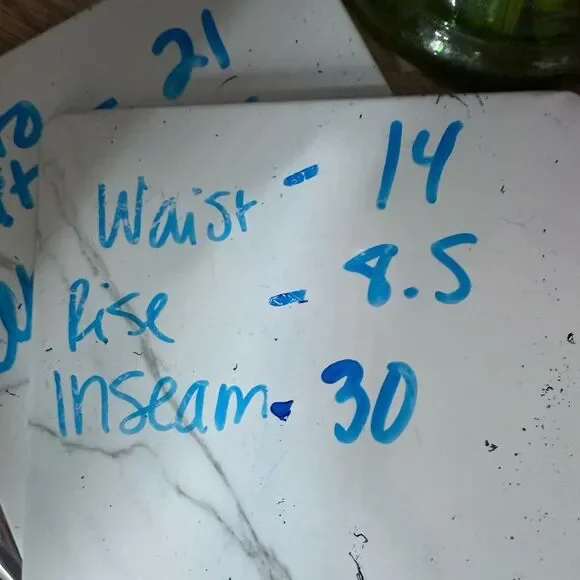 21
Waist - 14
Rise - 8.5
Inseam - 30